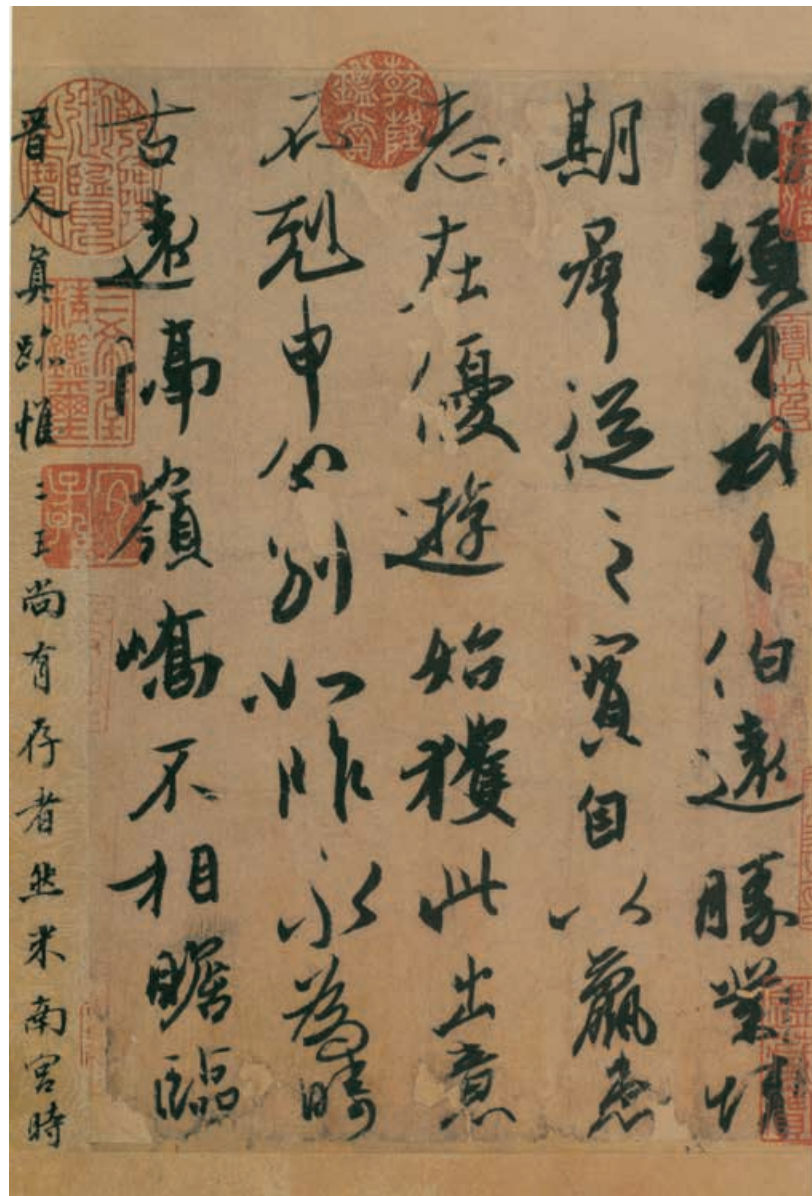 珣頓首頓首伯遠勝業情
期羣從之寶自以羸患
志在優遊始獲此出意
不剋申分別如昨永為疇
古遠隔嶺嶠不相瞻臨
晉人真跡惟二王尚有存者然米南宮時
乾隆鑑賞
三希堂精鑑璽
宜子孫